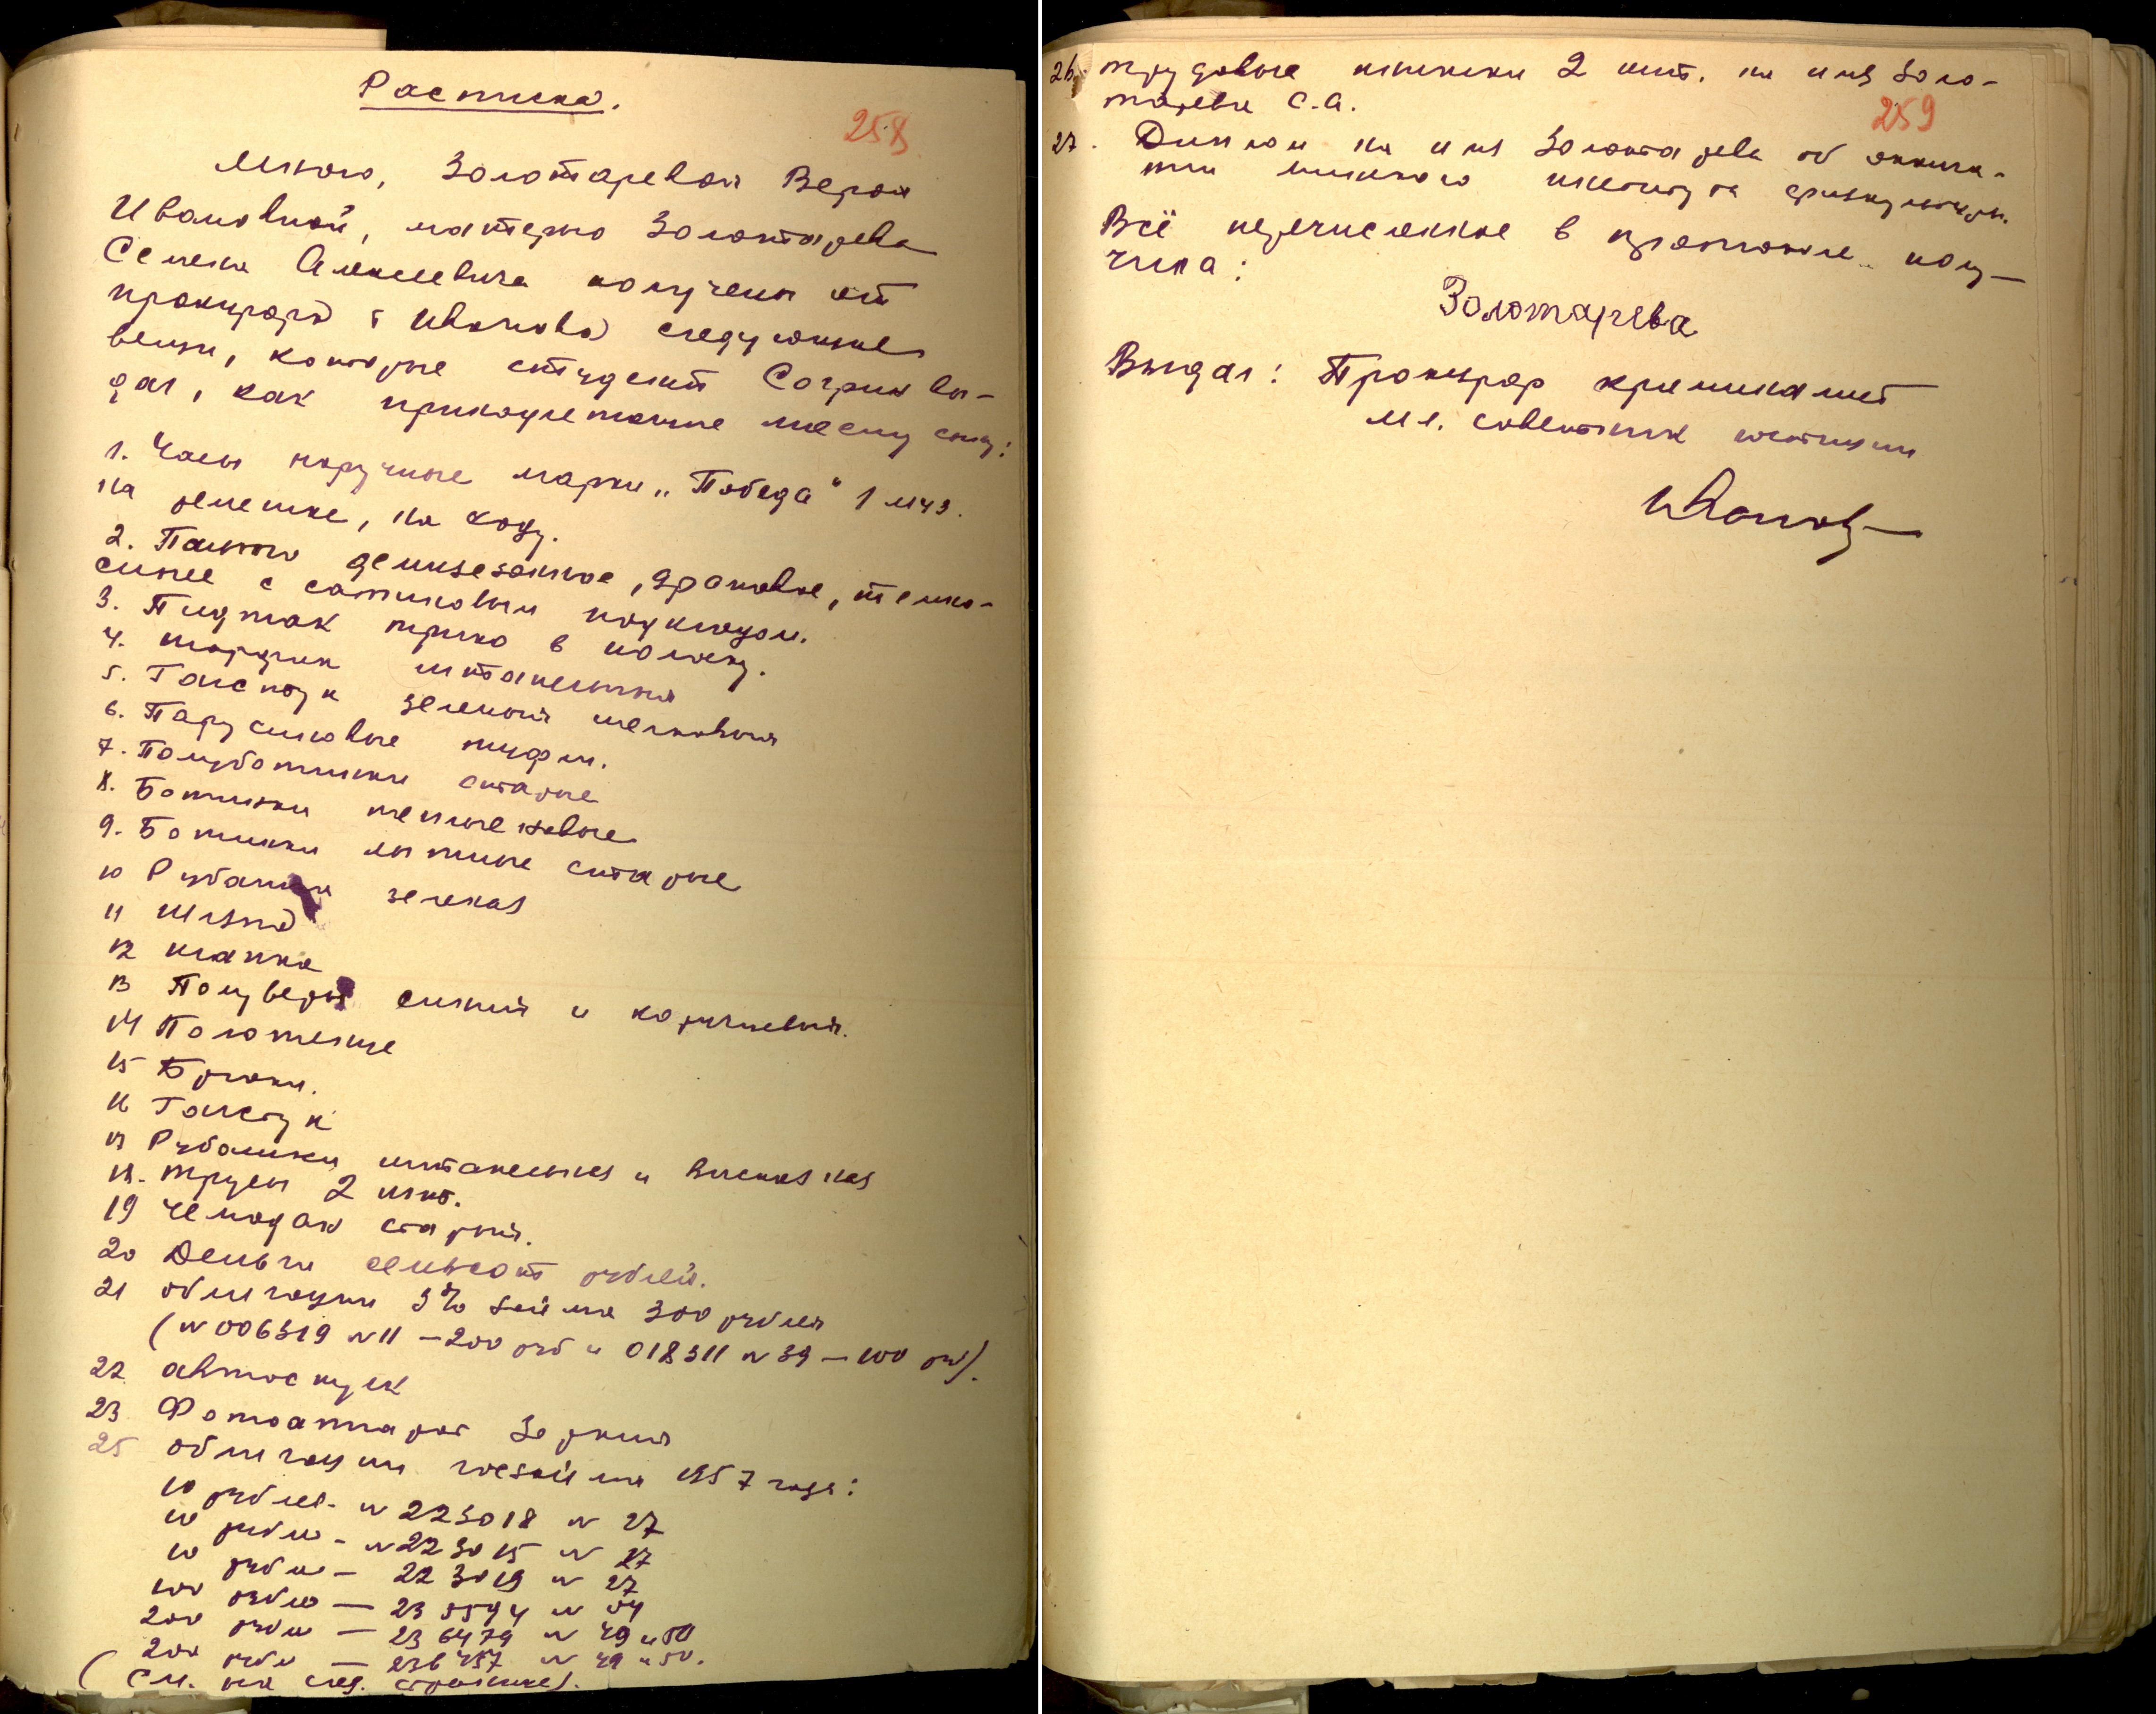 Расписка.
258
Мною, Золотаревой Верой
Ивановной, матерью Золотарева
Семена Алексеевича получены от
прокурора т Иванова следующие
вещи, которые студент Согрин вы-
дал, как принадлежащие моему сыну:
1. Часы наручные марки „Победа“ 1 мчз.
на ремешке, на ходу.
2. Пальто демисезонное, драповое, темно-
синее с сатиновым подкладом.
3. Пиджак трико в полоску.
4. шарфик штапельный
5. Галстук зеленый шелковый
6. Парусиновые туфли.
7. Полуботинки старые
8. Ботинки теплые новые
9. Ботинки лыжные старые
10 Рубашка зеленая
11 Шляпа
12 шапка
13 Полувера синий и коричневый.
14 Полотенце
15 Брюки.
16 Галстук
17 Рубашки штапельная и вискозная
18. Трусы 2 шт.
19 Чемодан старый.
20 Деньги семьсот рублей.
21 облигации 3% займа 300 рублей
(N 006319 N 11 – 200 руб и 018311 N 39 – 100 руб).
22 автоспуск
23 Фотоаппарат Зоркий
25 облигации госзайма 1957 года:
10 рублей - N 223018 N 27
10 рублей - N 223015 N 27
10 рублей – 223019 N 27
100 рублей – 235594 N 04
200 рублей – 236479 N 49 и 50
200 рублей – 236457 N 49 и 50.
(См. на след. странице).
26. трудовые книжки 2 шт. на имя Золо-
тарева С.А.
259
27. Диплом на имя Золотарева об оконча-
нии минского института физкультуры.
Всё перечисленное в протоколе полу-
чила:
Золотарева
Выдал: Прокурор криминалист
мл. советник юстиции
Иванов